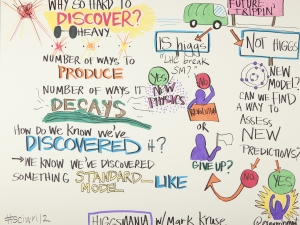 WHY SO HARD TO
DISCOVER?
HEAVY
NUMBER OF WAYS TO
PRODUCE
NUMBER OF WAYS IT
DECAYS
HOW DO WE KNOW WE'VE
DISCOVERED it?
→ WE KNOW WE'VE DISCOVERED
SOMETHING STANDARD
MODEL LIKE
#sciwri12
FUTURE
TRIPPIN'
IS higgs
"LHC break
SM?"
YES
NEW
PHYSICS
NO
REVOLUTION
OR
GIVE UP?
NOT HIGGS
NEW
MODEL?
CAN WE FIND
A WAY TO
ASSESS
NEW
PREDICTIONS?
NO
YES
HIGGSMANIA w/MARK KRUSE